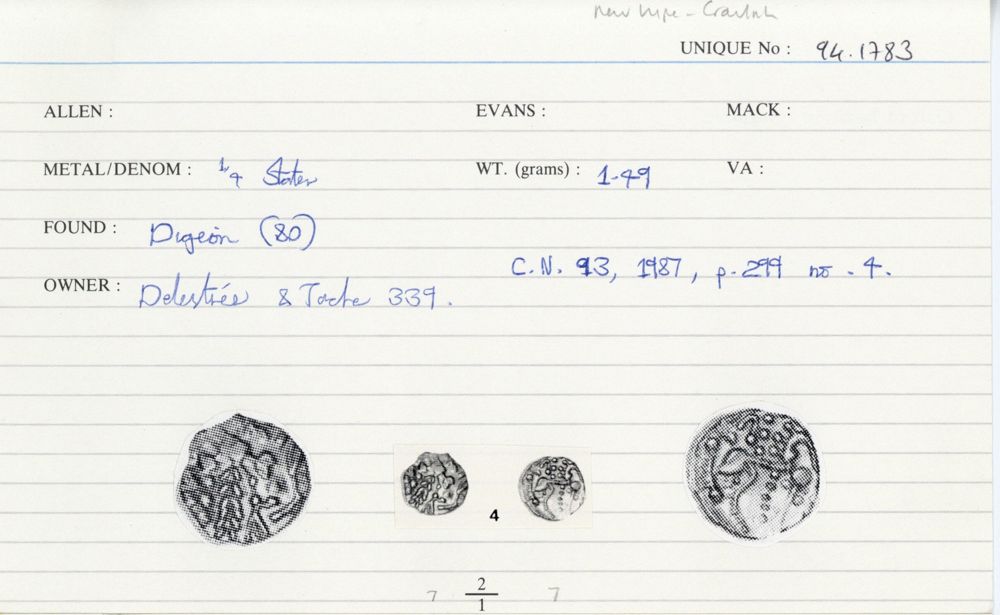 new type -
UNIQUE No : 94.1783
ALLEN : EVANS : MACK :
METAL/DENOM : 1/4 Stater WT. (grams) : 1.49 VA :
FOUND : Digeon (80)
C.N. 93, 1987, p.299 no. 4.
OWNER : Delestrée & Tache 339.
4
7 2/1 7